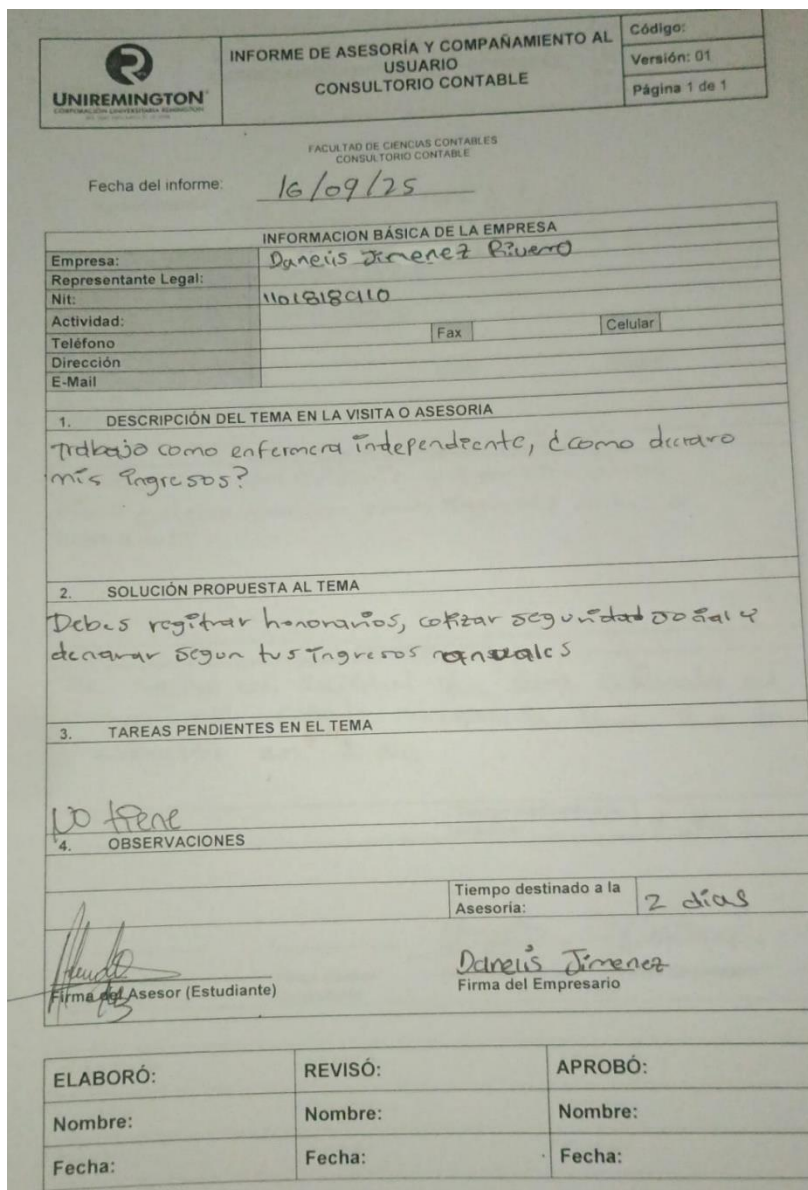 UNIREMINGTON
CORPORACIÓN UNIVERSITARIA REMINGTON
INFORME DE ASESORÍA Y COMPAÑAMIENTO AL
USUARIO
CONSULTORIO CONTABLE
Código:
Versión: 01
Página 1 de 1
FACULTAD DE CIENCIAS CONTABLES
CONSULTORIO CONTABLE
Fecha del informe: 16/09/25
INFORMACION BÁSICA DE LA EMPRESA
Empresa: Danelis Jimenez Rivero
Representante Legal:
Nit:
Actividad:
Teléfono Fax Celular
Dirección
E-Mail
1. DESCRIPCIÓN DEL TEMA EN LA VISITA O ASESORIA
Trabajo como enfermera independiente, ¿como declaro
mis ingresos?
2. SOLUCIÓN PROPUESTA AL TEMA
Debes regitrar honorarios, cotizar seguridad social y
declarar segun tus ingresos anuales
3. TAREAS PENDIENTES EN EL TEMA
No tiene
4. OBSERVACIONES
Tiempo destinado a la
Asesoría: 2 días
Danelis Jimenez
Firma del Asesor (Estudiante) Firma del Empresario
ELABORÓ: REVISÓ: APROBÓ:
Nombre: Nombre: Nombre:
Fecha: Fecha: Fecha: